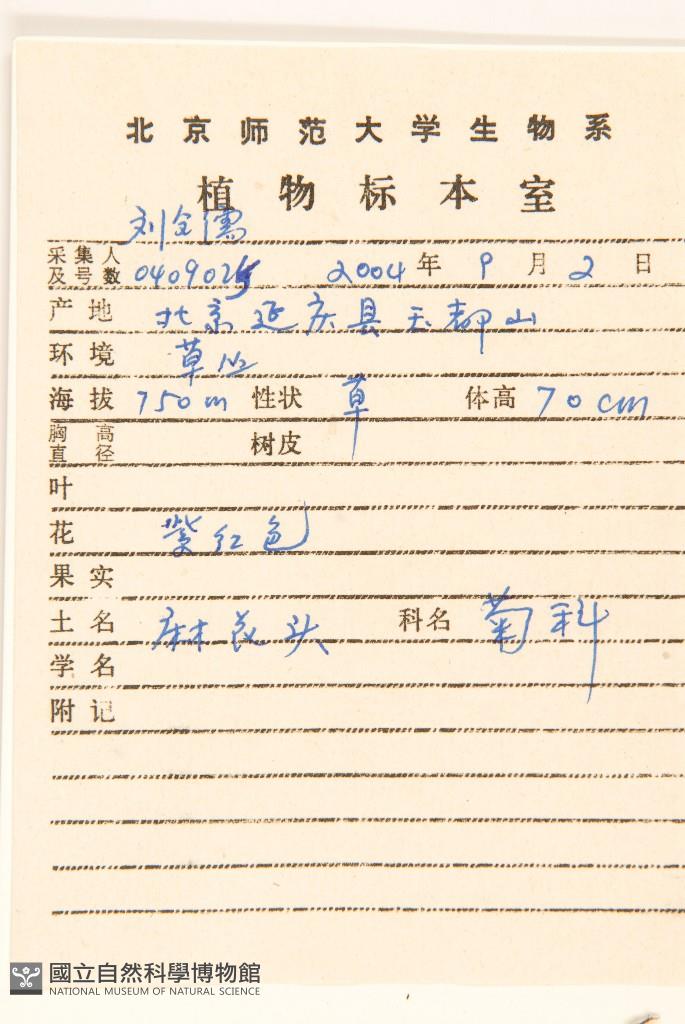 北京师范大学生物系
植物标本室
刘全儒
采集人及号数 0409025 2004 年 9 月 2 日
产地 北京延庆县玉都山
环境 草丛
海拔 750m 性状 草 体高 70cm
胸高直径 树皮
叶
花 紫红色
果实
土名 麻花头 科名 菊科
学名
附记
國立自然科學博物館
NATIONAL MUSEUM OF NATURAL SCIENCE